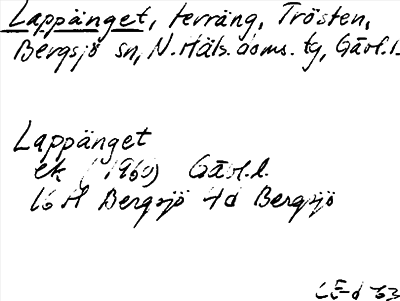 Lappänget, terräng, Trösten,
Bergsjö sn, N. Häls. doms. tg, Gävl.l.
Lappänget
ek (1960) Gävl.l.
16 H Bergsjö 4d Bergsjö